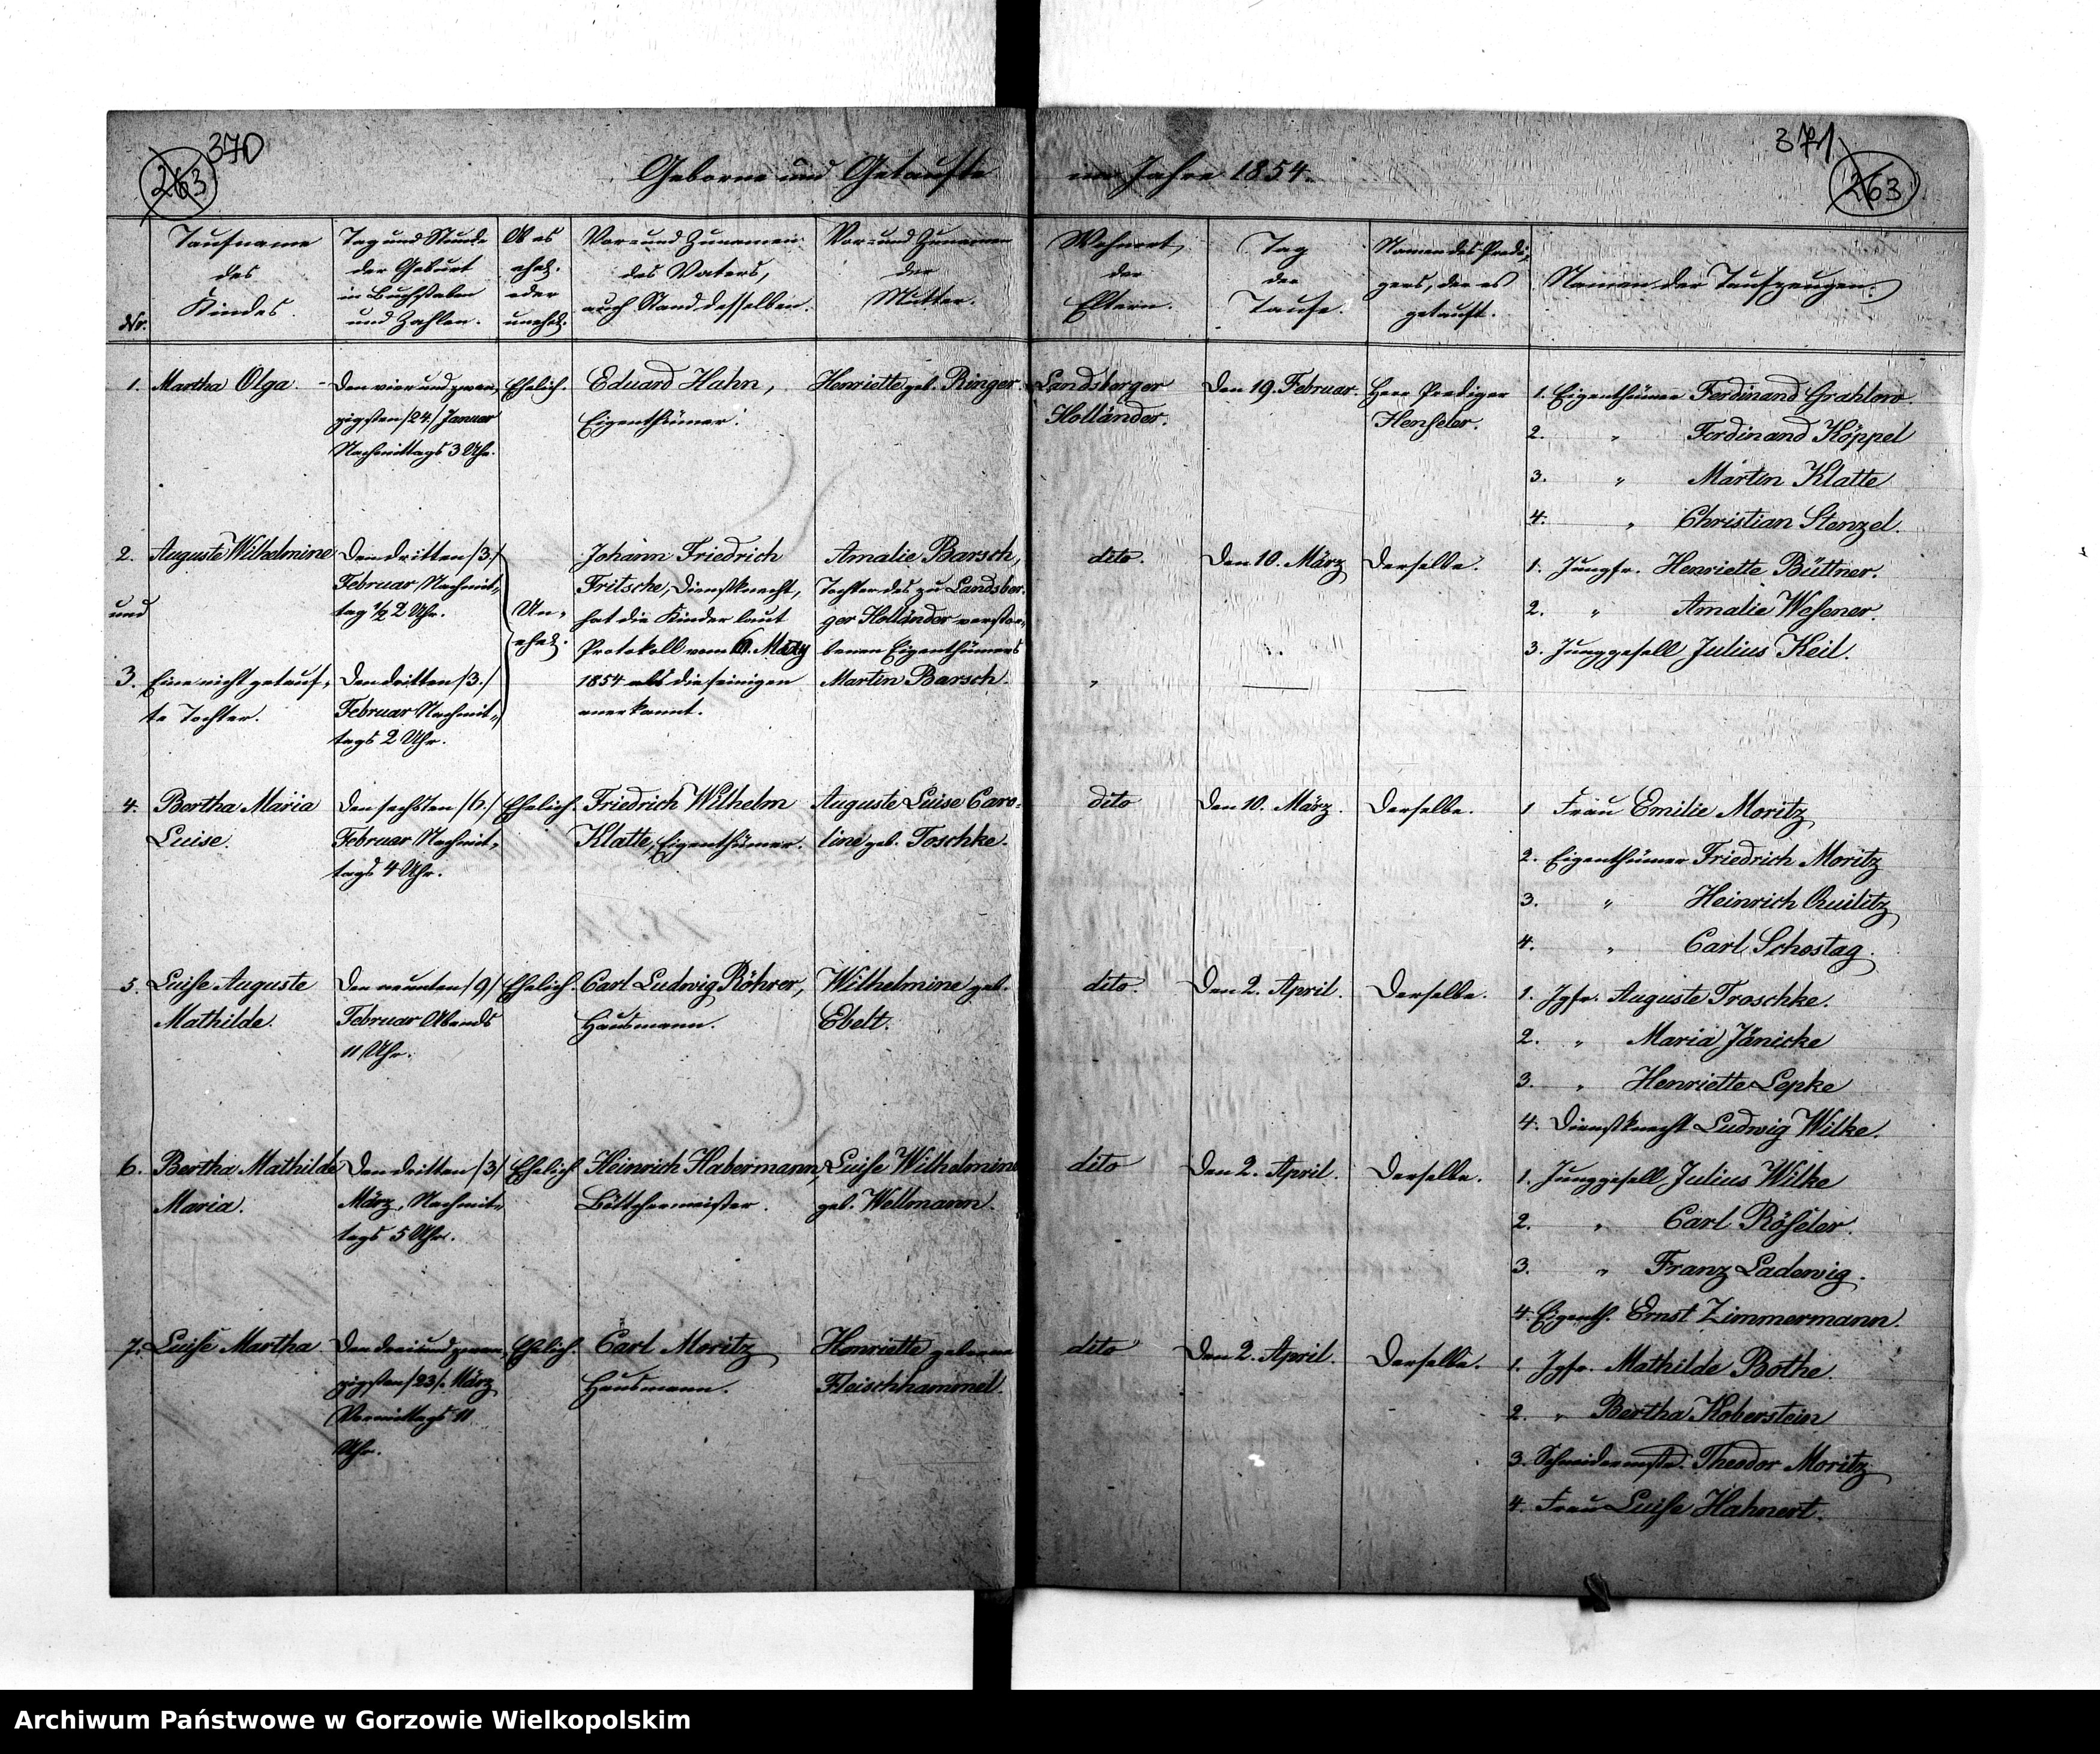 370
263
Geborne und Getaufte im Jahre 1854.
371
263
No.
Taufname
des
Kindes.
Tag und Stunde
der Geburt
in Buchstaben
und Zahlen.
Ob es
ehel.
oder
unehel.
Vor- und Zunamen
des Vaters,
auch Stand desselben.
Vor- und Zunamen
der
Mutter.
Wohnort
der
Eltern.
Tag
der
Taufe.
Namen des Predi-
gers, der es
getauft.
Namen der Taufzeugen.
1. Martha Olga.
Den vier und zwan-
zigsten /24./ Januar
Nachmittags 3 Uhr.
Ehelich.
Eduard Hahn,
Eigenthümer.
Henriette geb. Ringer.
Landsberger
Holländer.
Den 19. Februar.
Herr Prediger
Henseler.
1. Eigenthümer Ferdinand Grahlow.
2. " Ferdinand Köppel
3. " Martin Klatte
4. " Christian Stenzel.
2. Auguste Wilhelmine
und
3. Eine nicht getauf-
te Tochter.
Den dritten /3/
Februar Nachmit-
tag ½ 2 Uhr.
Den dritten /3./
Februar Nachmit-
tags 2 Uhr.
Un-
ehel.
Johann Friedrich
Fritsche, Dienstknecht,
hat die Kinder laut
Protokoll vom 6. May
1854 als die seinigen
anerkannt.
Amalie Barsch,
Tochter des zu Landsber-
ger Holländer verstor-
benen Eigenthümers
Martin Barsch.
dito.
"
Den 10. März
Derselbe.
1. Jungfr. Henriette Büttner.
2. " Amalie Wesener.
3. Junggesell Julius Keil.
4. Bertha Maria
Luise.
Den sechsten /6./
Februar Nachmit-
tags 4 Uhr.
Ehelich.
Friedrich Wilhelm
Klatte, Eigenthümer.
Auguste Luise Caro-
line geb. Toschke.
dito
Den 10. März.
Derselbe.
1 Frau Emilie Moritz
2. Eigenthümer Friedrich Moritz
3. " Heinrich Quilitz
4. " Carl Schostag.
5. Luise Auguste
Mathilde.
Den neunten /9/
Februar Abends
11 Uhr.
Ehelich.
Carl Ludwig Röhrer,
Hausmann.
Wilhelmine geb.
Ebelt.
dito.
Den 2. April.
Derselbe.
1. Jgfr. Auguste Troschke.
2. " Maria Jänicke
3. " Henriette Lepke
4. Dienstknecht Ludwig Wilke.
6. Bertha Mathilde
Maria.
Den dritten /3/
März, Nachmit-
tags 5 Uhr.
Ehelich.
Heinrich Habermann,
Böttchermeister.
Luise Wilhelmine
geb. Wellmann.
dito
Den 2. April.
Derselbe.
1. Junggesell Julius Wilke
2. " Carl Röseler.
3. " Franz Ladewig.
4. Eigenth. Ernst Zimmermann.
7. Luise Martha
Den drei und zwan-
zigsten /23/. März
Vormittags 11
Uhr.
Ehelich.
Carl Moritz
Hausmann.
Henriette geborne
Fleischhammel.
dito
Den 2. April.
Derselbe.
1. Jgfr. Mathilde Bothe.
2. " Bertha Koberstein
3. Schneidermstr. Theodor Moritz
4. Frau Luise Hahnert.
Archiwum Państwowe w Gorzowie Wielkopolskim